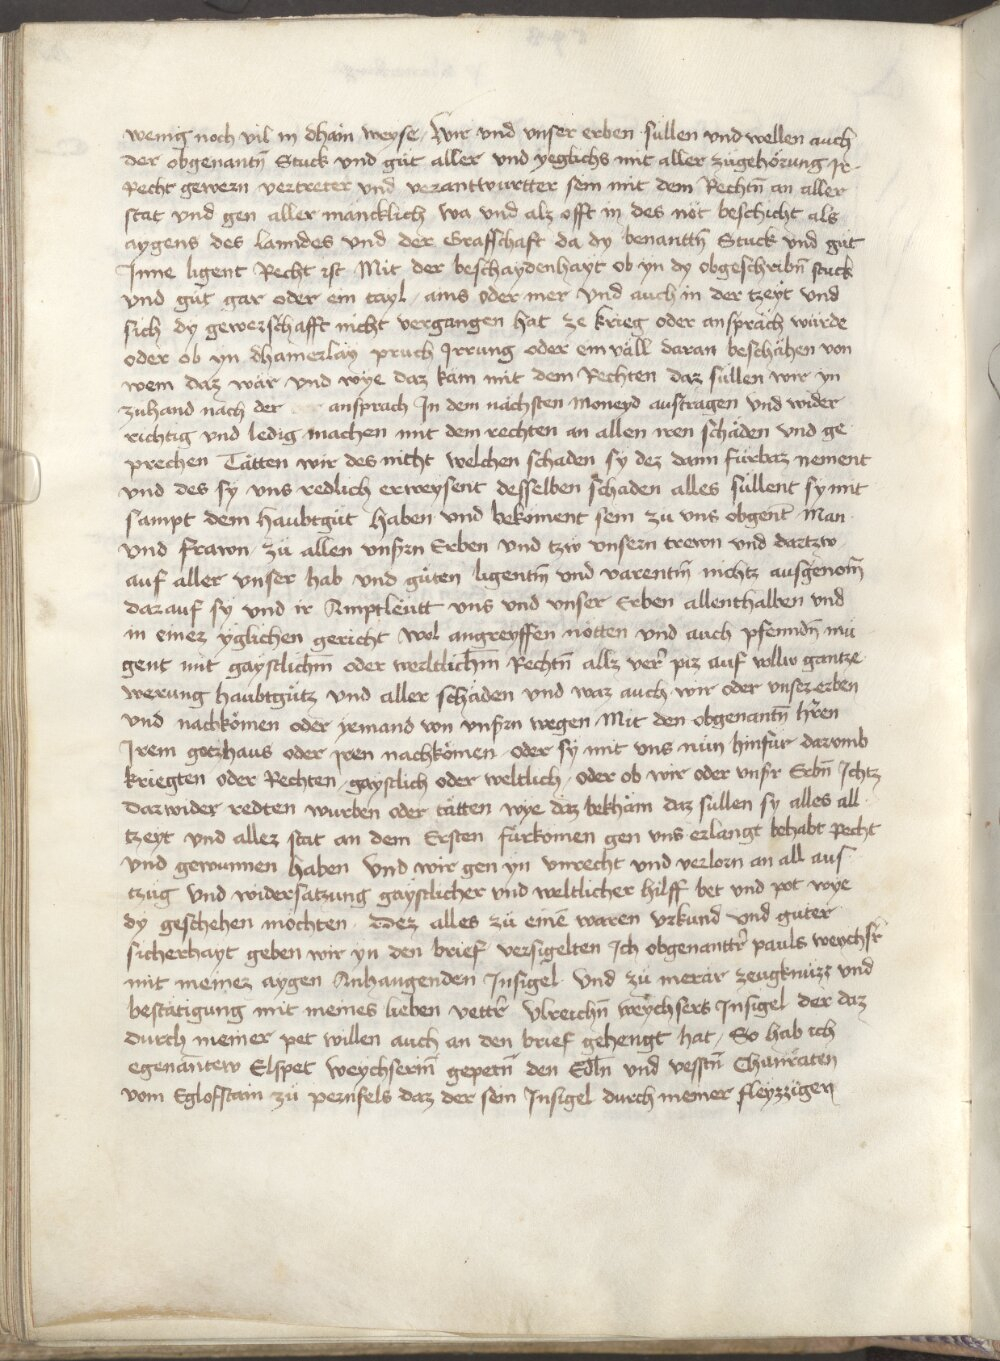 wenig noch vil in dhain weyse / Wir und unser erben sullen und wellen auch
der obgenantn̄ Stuck und gůt aller und yeglichs mit aller zůgehörung Ir
Recht gewern vertreter und verantwurtter sein mit dem Rechtn̄ an aller
stat und gen aller mäncklich wa und alz offt in des nöt beschicht als
aygens des lanndes und der Graffschaft da dy benanttn̄ Stuck und gůt
Inne ligent Recht ist Mit der beschaydenhayt ob yn dy obgeschribn̄ stuck
und gůt gar oder ein tayl / ains oder mer Und auch in der tzeyt und
sich dy gewerschafft nicht vergangen hat ze krieg oder ansprach würde
oder ob yn dhainerlay pruch Irrung oder einväll daran beschähen von
wem daz wär und wye daz käm mit dem Rechten daz süllen wir yn
zuhand nach der ansprach In dem nächsten Moneyd austragen und wider
richtig und ledig machen mit dem rechten an allen iren schäden und ge
prechen Tätten wir des nicht welchen schaden sy dez dann fürbaz nement
und des sy uns redlich erweysent desselben schaden alles süllent sy mit
sampt dem haubtgůt haben und bekoment sein zu uns obgent̄ Man
und frawn / zů allen unsrn̄ Erben und tzw unsern trewn und dartzw
auf aller unser hab und gůten ligentn̄ und varentn̄ nichtz ausgenom̄
darauf sy und ir Amptleütt uns und unser Erben allenthalben und
in einer yglichen gericht wol angreyffen nötten und auch pfenndn̄ mü
gent mit gaystlichm̄ oder werltlichm̄ Rechtn̄ allz verr̄ piz auf vollw gantze
werung haubtgůtz und aller schäden und waz auch wir oder unser erben
und nachkömen oder yemand von unsrn̄ wegen Mit den obgenantn̄ hr̄ren
Irem gotzhaus oder iren nachkömen oder sy mit uns nün hinfür darumb
kriegten oder Rechten / gaystlich oder weltlich / oder ob wir oder unsr̄ Erbn̄ Ichtz
dazwider redten wurben oder tätten wye daz bekhäm daz sullen sy alles all
tzeyt und aller stat an dem Ersten fürkomen gen uns erlangt behabt Recht
und gewunnen haben Und wir gen yn unrecht und verlorn an all aus
tzug und widersatzung gaystlicher und weltlicher hilff bet und pot wye
dy geschehen möchten. Dez alles zů eine͂ waren urkund und guter
sicherhayt geben wir yn den brief versigelten Ich obgenanttr̄ pauls weychsr̄
mit meinez aygen Anhangenden Insigel Und zů merär zeugknüzz und
bestätigung mit meines lieben vettr̄ Ulreichn̄ weychsers Insigel der daz
durch meiner pet willen auch an den brief gehengt hat / So hab ich
egenan̄tew Elspet weychserin̄ gepetn̄ den Edln̄ und vesstn̄ Chunraten
vom Eglofstain zů pernfels daz der sein Insigel durch meiner fleyzzigen